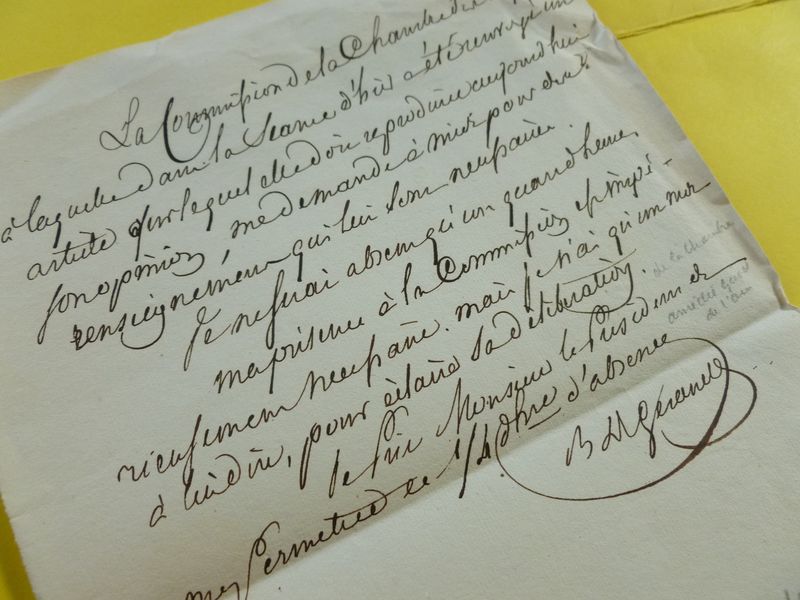 La Commission de la Chambre des
à laquelle dans la Séance d'hier a été renvoyé un
article sur lequel elle doit reproduire aujourd'hui
son opinion, me demande à midi pour des
renseignemens qui lui sont nécessaires.
Je ne serai absent qu'un quart d'heure,
ma présence à la Commission est impé-
rieusement nécessaire. mais je n'ai qu'un mot
à lui dire, pour éclairer sa délibération.
Je Prie Monsieur le Président de
me permettre ce 1/4 d'hre d'absence
B Degérando
de la Chambre